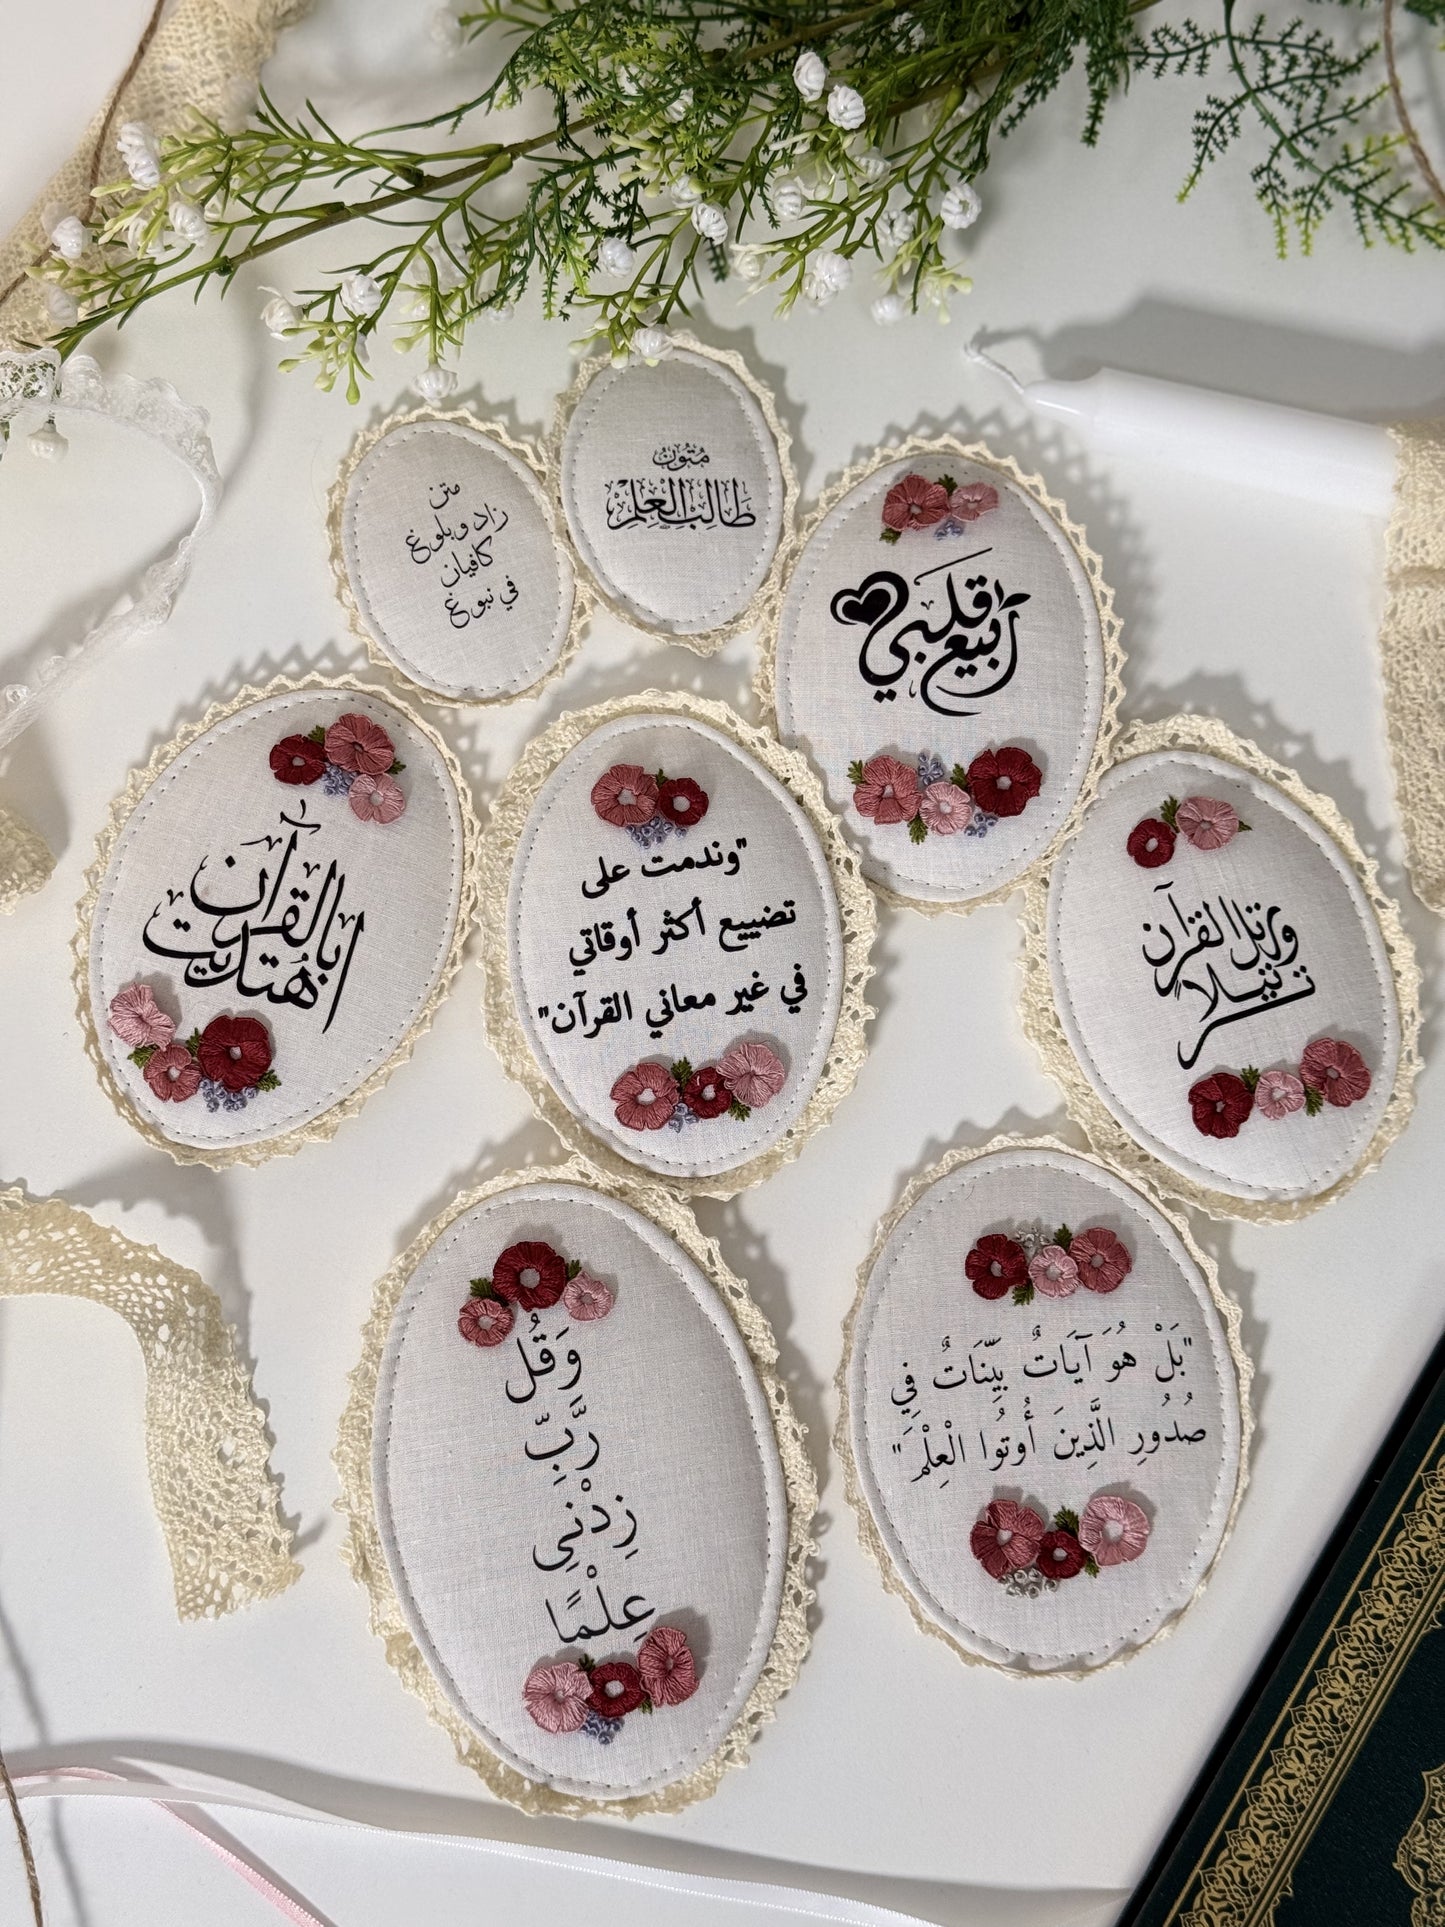 متون
طالب العلم
متن
زاد وبلوغ
كافيان
في نبوغ
ربيع قلبي
بالقرآن
اهتديت
"وندمت على
تضييع أكثر أوقاتي
في غير معاني القرآن"
ورتل القرآن
ترتيلا
وَقُل
رَّبِّ
زِدْنِي
عِلْمًا
"بَلْ هُوَ آيَاتٌ بَيِّنَاتٌ فِي
صُدُورِ الَّذِينَ أُوتُوا الْعِلْمَ"